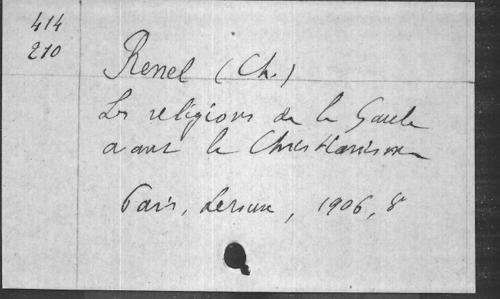 414
210
Renel (Ch.)
Les religions de la Gaule
avant le Christianisme
Paris, Leroux, 1906, 8°